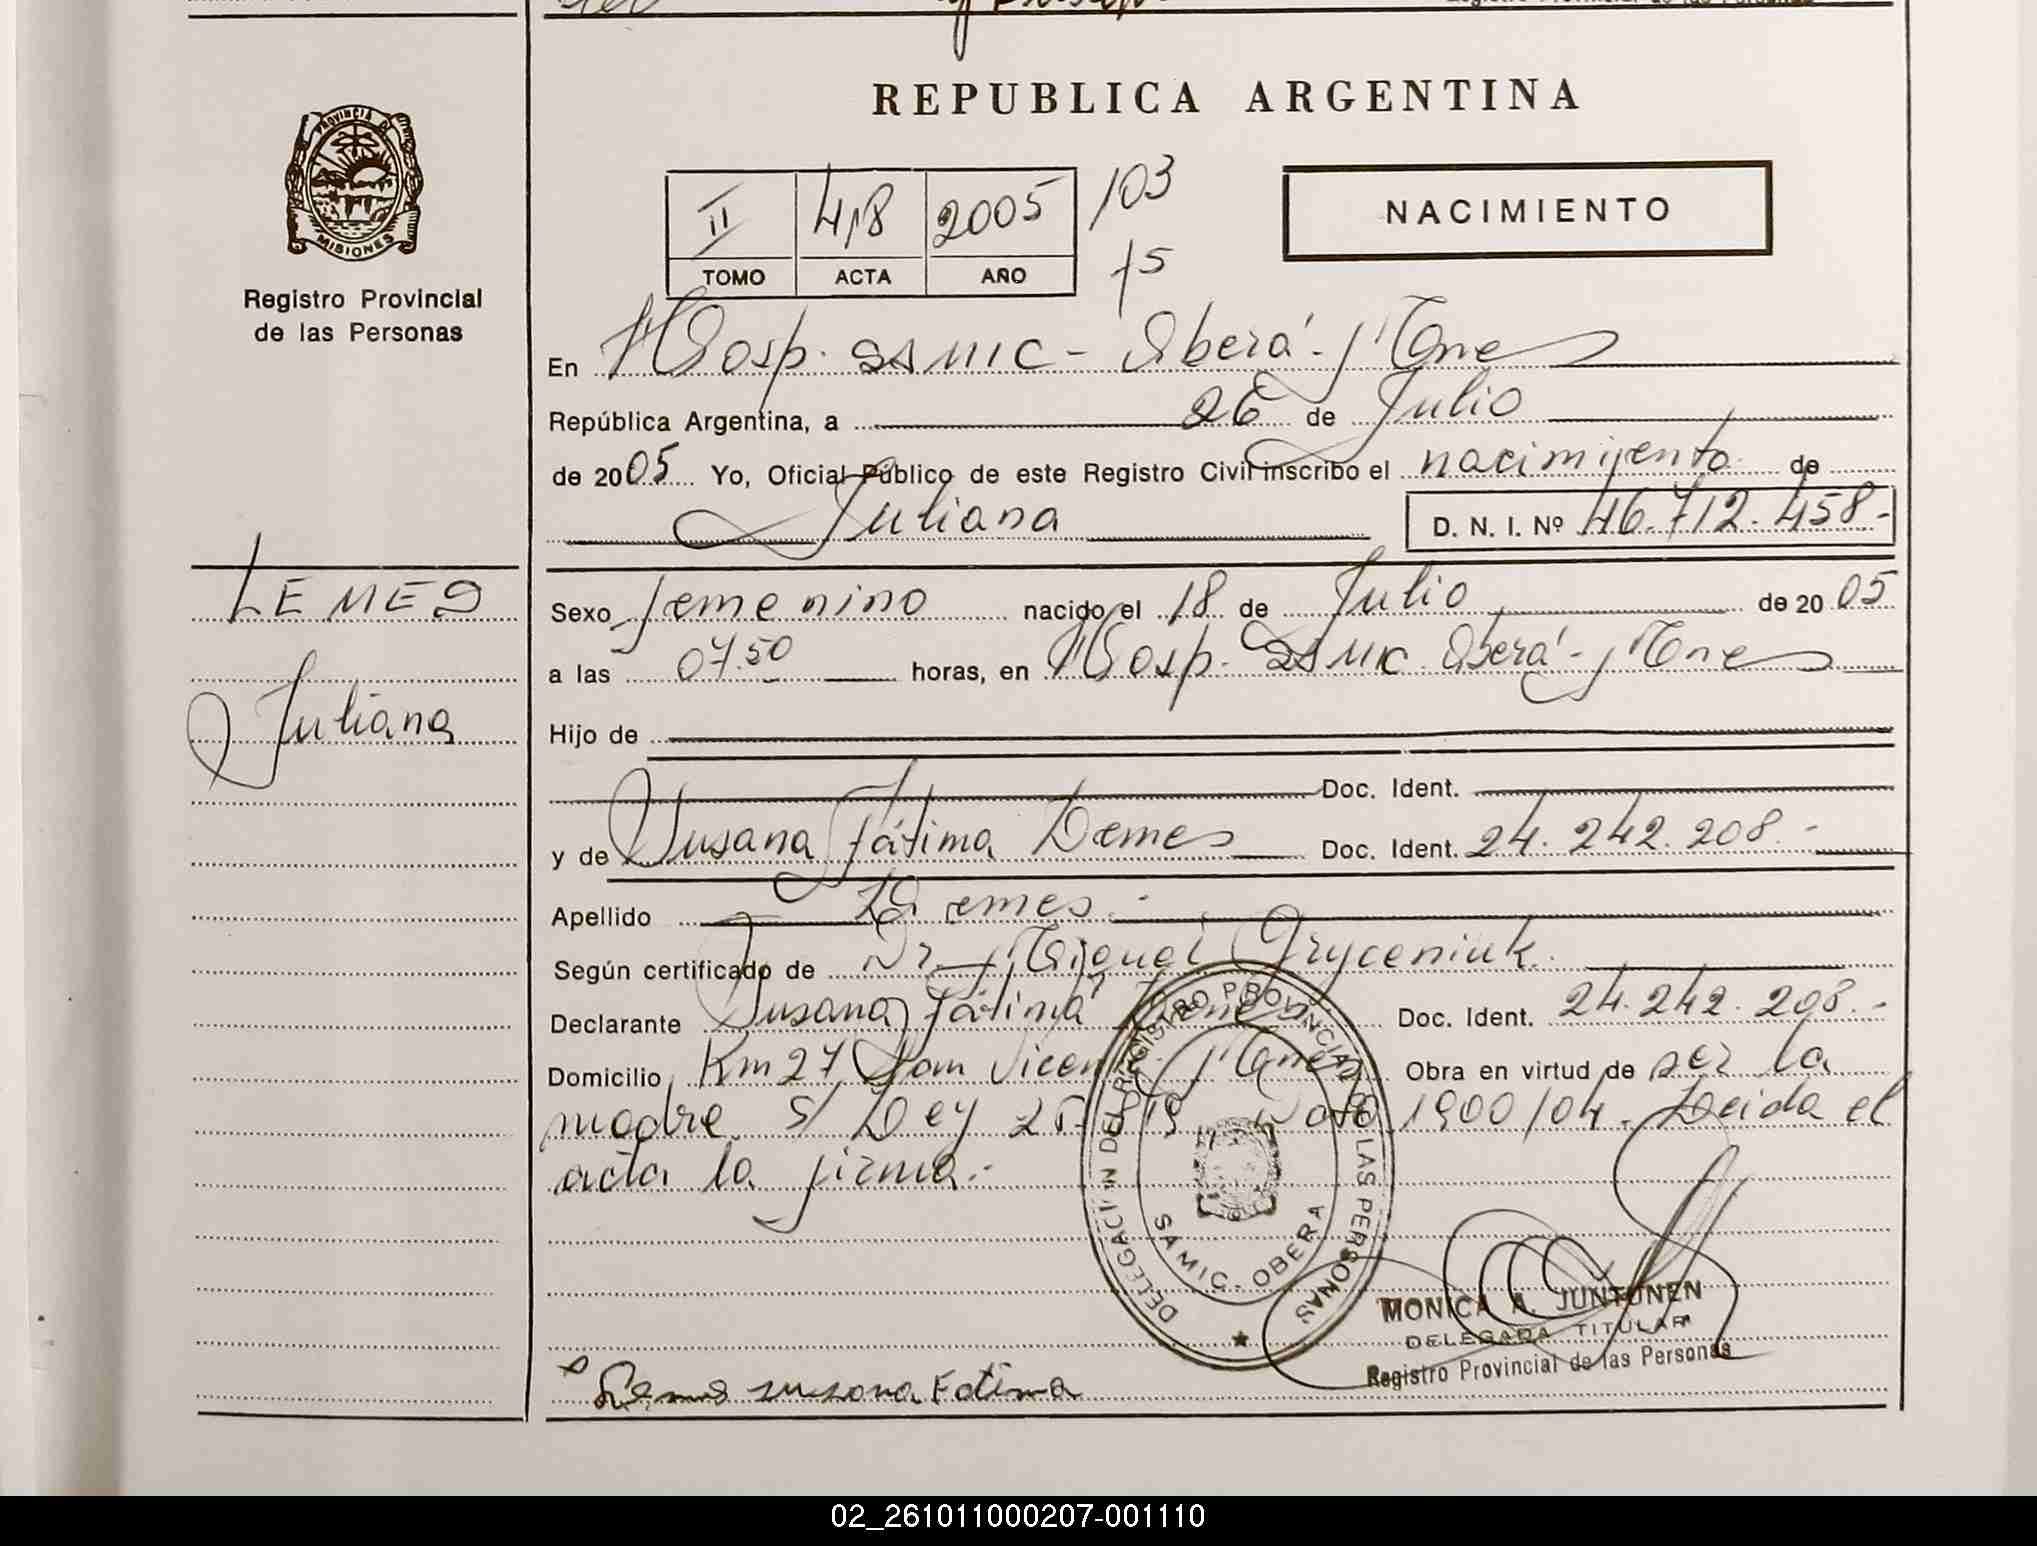 REPUBLICA ARGENTINA
PROVINCIA DE
MISIONES
Registro Provincial
de las Personas
II 418 2005 /103
TOMO ACTA AÑO
/5
NACIMIENTO
En Hosp. SAMIC - Oberá - Mnes
República Argentina, a 26 de Julio
de 2005 Yo, Oficial Público de este Registro Civil inscribo el nacimiento de
Juliana D. N. I. Nº 46.712.458.-
LEMES
Juliana
Sexo femenino nacido el 18 de Julio de 2005
a las 07.50 horas, en Hosp. SAMIC Oberá - Mnes
Hijo de
Doc. Ident.
y de Susana Fátima Lemes Doc. Ident. 24.242.208.-
Apellido Lemes.-
Según certificado de Dr. Miguel Gryceniuk.
Declarante Susana Fátima Lemes Doc. Ident. 24.242.208.-
Domicilio Km 27 San Vicente Mnes Obra en virtud de ser la
madre s/ Ley 25.819 1900/04. Leida el
acta la firma.-
DELEGACION DEL REGISTRO PROVINCIAL DE LAS PERSONAS
SAMIC - OBERA
MONICA A. JUNTUNEN
DELEGADA TITULAR
Registro Provincial de las Personas
Lemes susana Fatima
02_261011000207-001110